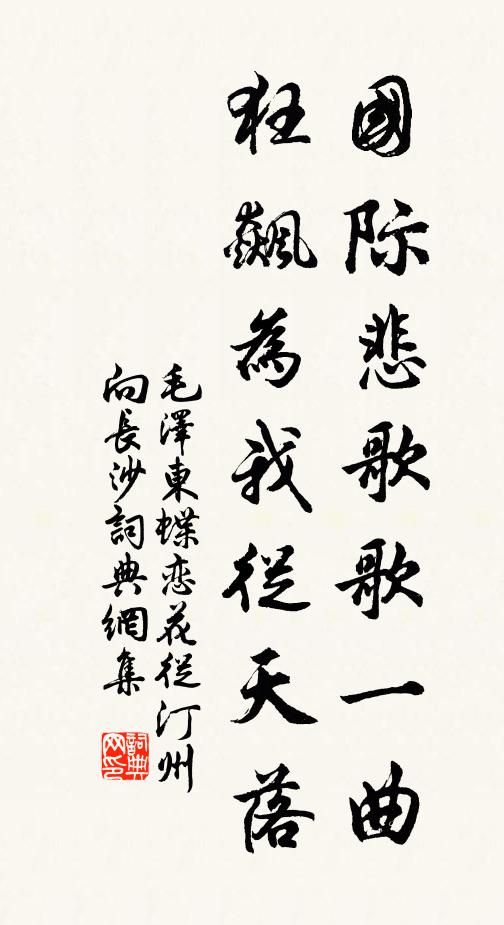 國际悲歌歌一曲
狂飆為我從天落
毛澤東蝶恋花從汀州
向長沙詞典網集
詞典
网印